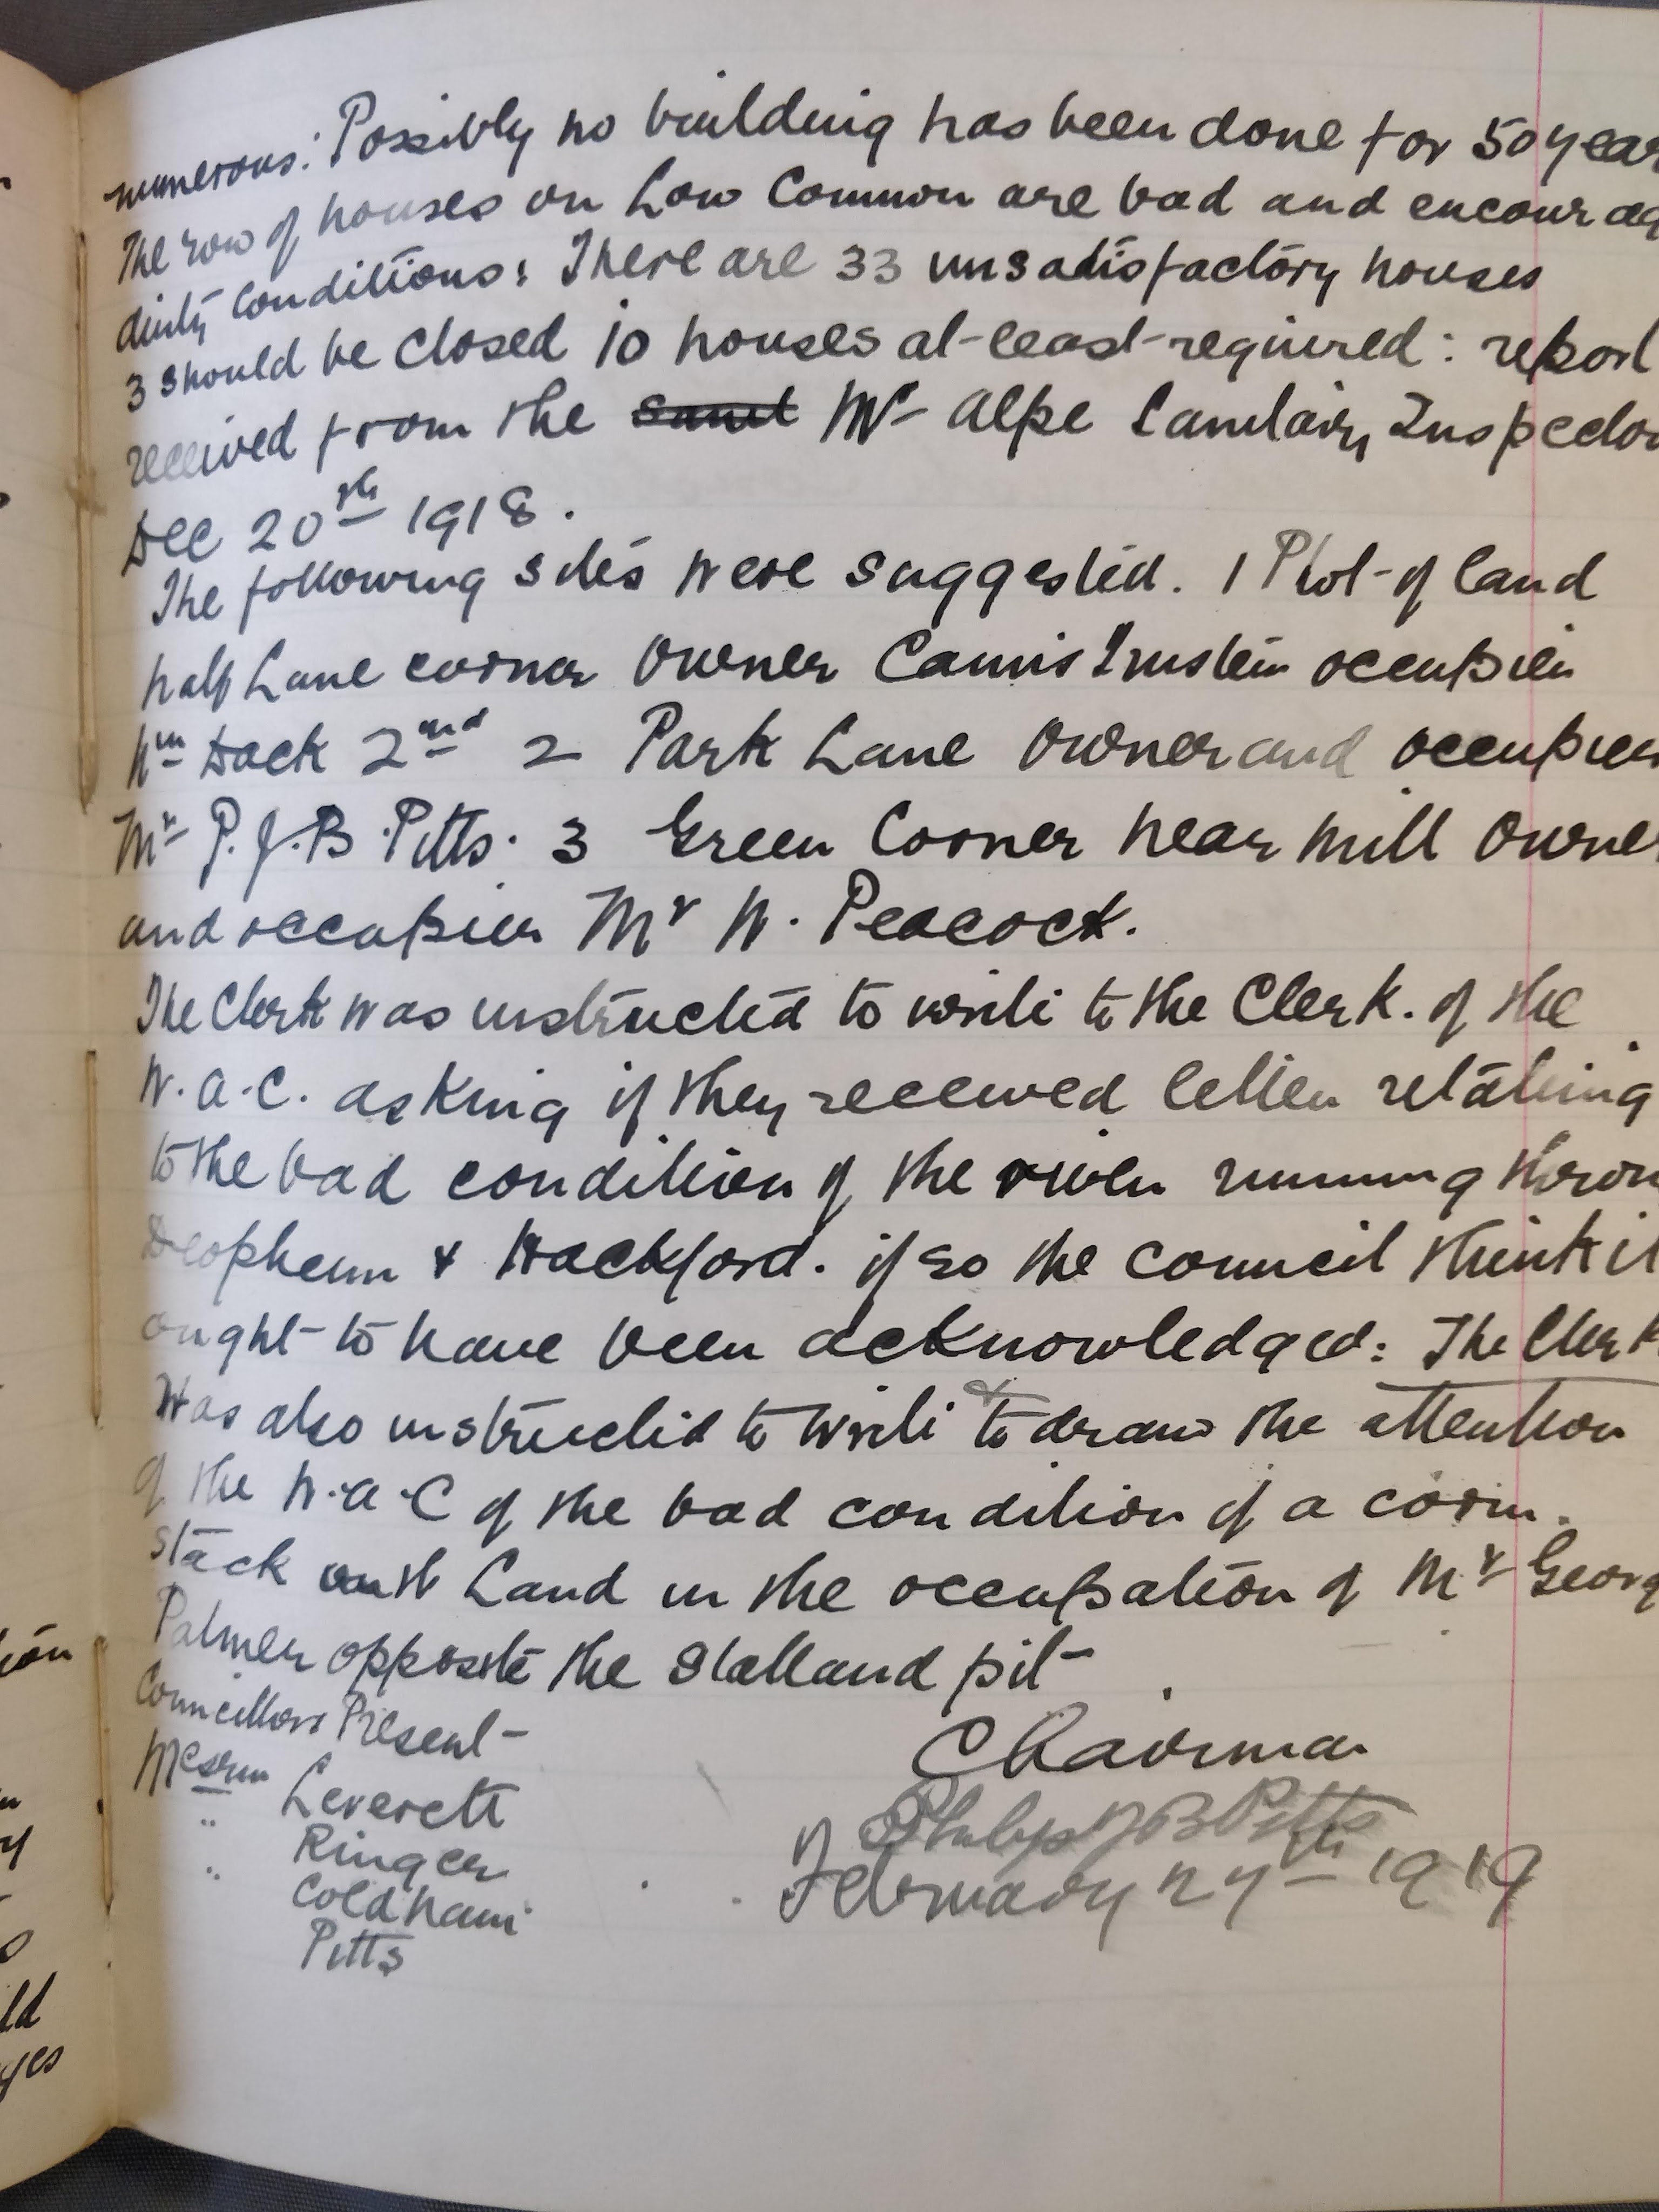 numerous: Possibly no building has been done for 50 year
The row of houses on Low Common are bad and encourag
dirty conditions: There are 33 unsatisfactory houses
3 should be closed 10 houses at least required: report
received from the Mr Alpe Sanitary Inspector
Dec 20th 1918.
The following sites were suggested. 1 Plot of land
half Lane corner Owner occupier
Wm Dack 2nd 2 Park Lane Owner and occupier
Mr P. J. B. Pitts. 3 Green Corner near Mill Owner
and occupier Mr W. Peacock.
The Clerk was instructed to write to the Clerk. of the
W. A. C. asking if they received letter relating
to the bad condition of the river running throu
Deopham & Hackford. if so the council think it
ought to have been acknowledged: The Clerk
Was also instructed to write & to draw the attention
of the W.A.C of the bad condition of a corn.
stack on the Land in the occupation of Mr Georg
Palmer opposite the Stalland pit
Councillors Present
Messrs Leverett
" Ringer
" Coldham
Pitts
Chairman
Philip J B Pitts
February 27th 1919